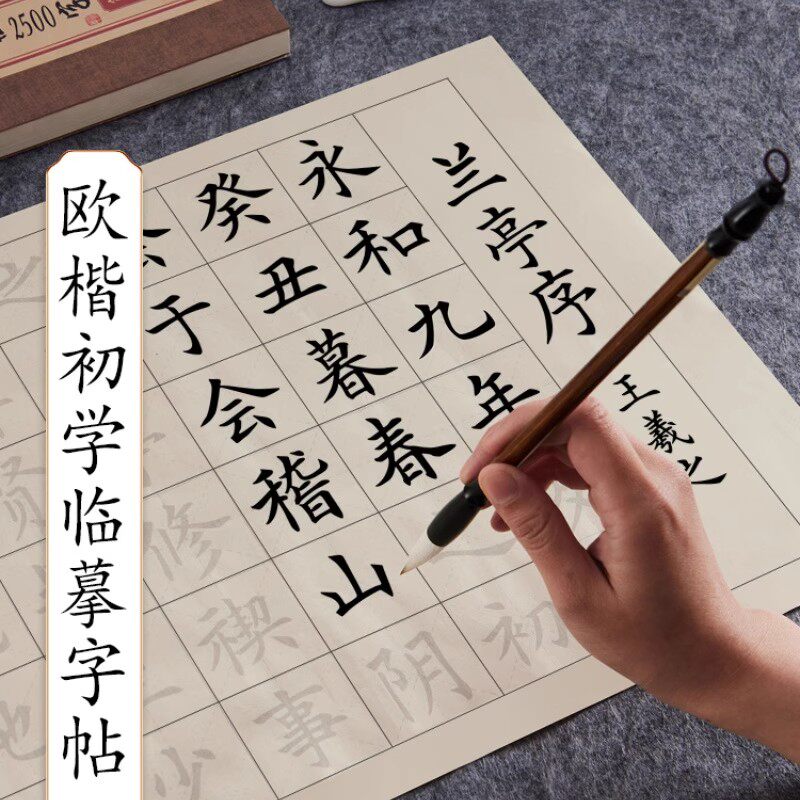 欧楷初学临摹字帖
兰亭序
王羲之
永和九年
癸丑暮春之初
会于会稽山阴
修禊事
贤
少
地
2500